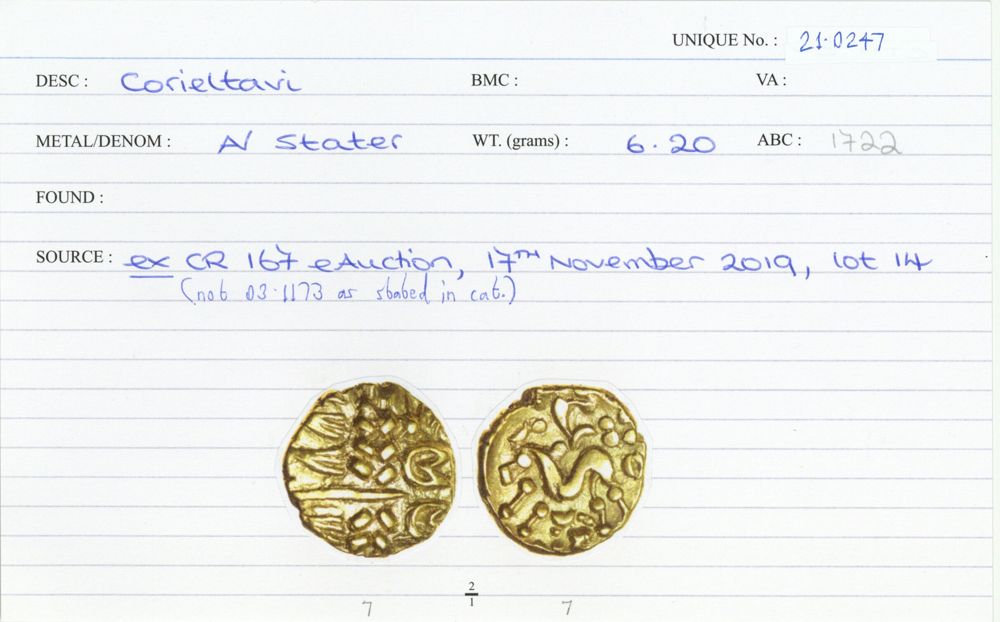 UNIQUE No. : 21·0247
DESC : Corieltavi BMC : VA :
METAL/DENOM : A/ Stater WT. (grams) : 6·20 ABC : 1722
FOUND :
SOURCE : ex CR 167 eAuction, 17TH November 2019, lot 14
(not 03·1173 as stated in cat.)
2
1
7 7